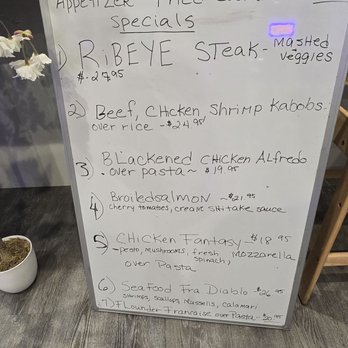 Appetizer
specials
1) RiBEYE STeak - mashed
veggies
$.27.95
2) Beef, CHicken Shrimp Kabobs
over rice - $24.95
3) BLackened CHicken ALfredo
over pasta ~ $19.95
4) Broiledsalmon ~ $21.95
cherry tomatoes, cream SHitake sauce
5) CHicken Fantasy - $18.95
-pesto, mushrooms, fresh Mozzarella
spinach,
over Pasta
6) Seafood Fra Diablo - $26.95
shrimps, scallops, mussells, calamari
7) FLounder Francaise over Pasta -